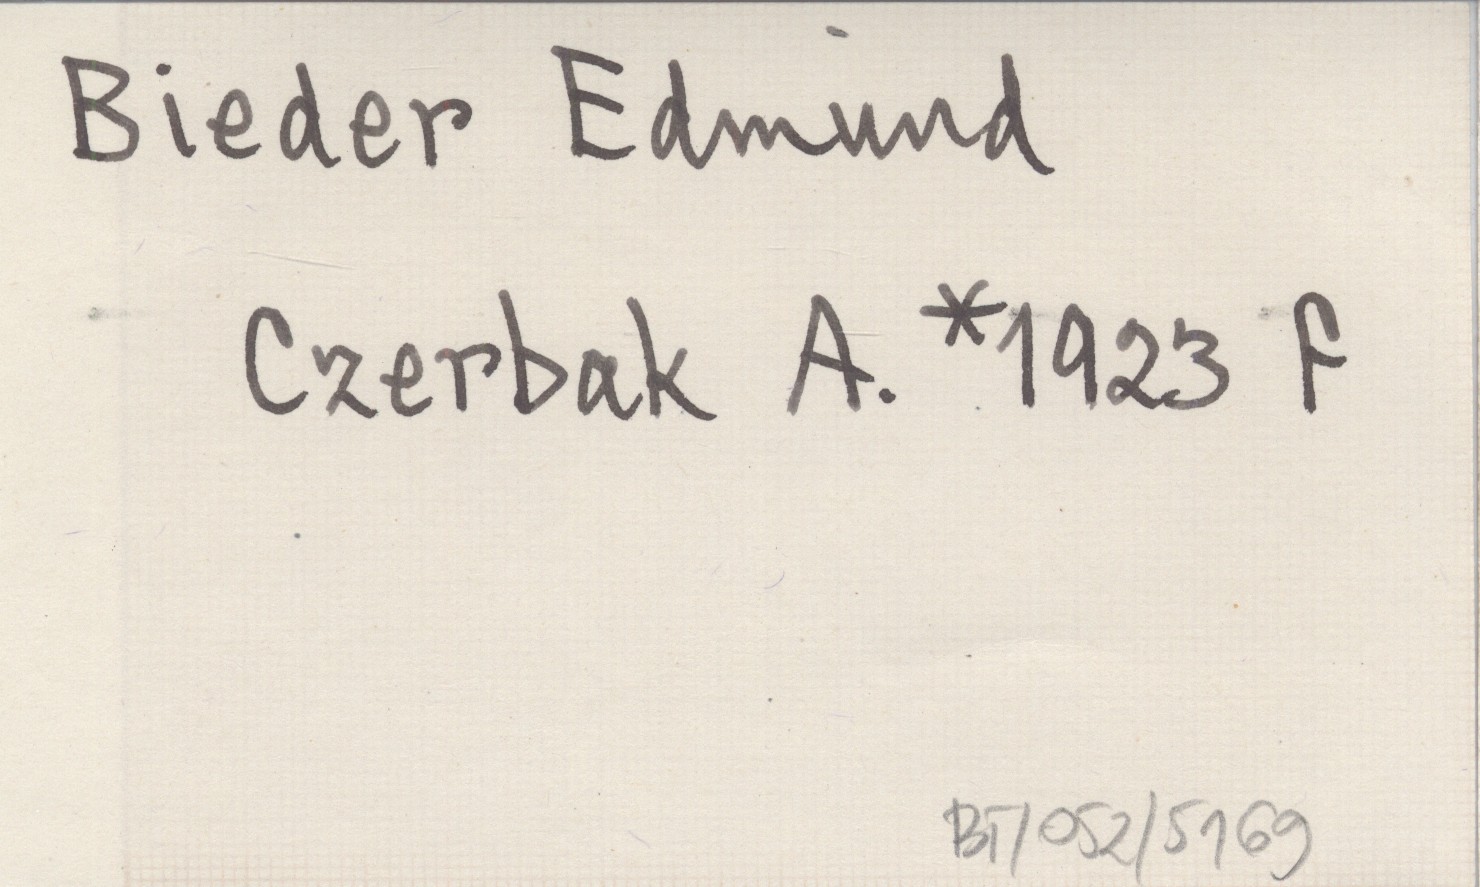 Bieder Edmund
Czerbak A. *1923 F
BT/052/5169